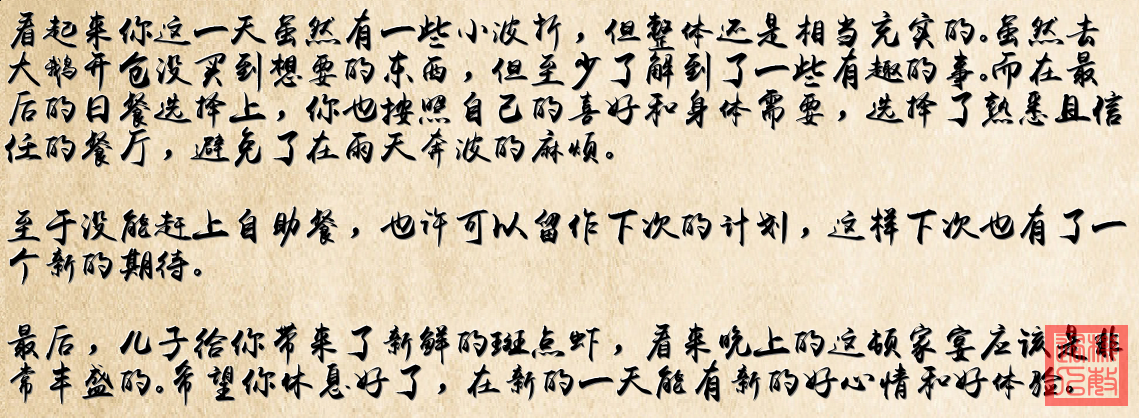 看起来你这一天虽然有一些小波折，但整体还是相当充实的。虽然去
大鹅开仓没买到想要的东西，但至少了解到了一些有趣的事。而在最
后的日餐选择上，你也按照自己的喜好和身体需要，选择了熟悉且信
任的餐厅，避免了在雨天奔波的麻烦。
至于没能赶上自助餐，也许可以留作下次的计划，这样下次也有了一
个新的期待。
最后，儿子给你带来了新鲜的斑点虾，看来晚上的这顿家宴应该是非
常丰盛的。希望你休息好了，在新的一天能有新的好心情和好体验。